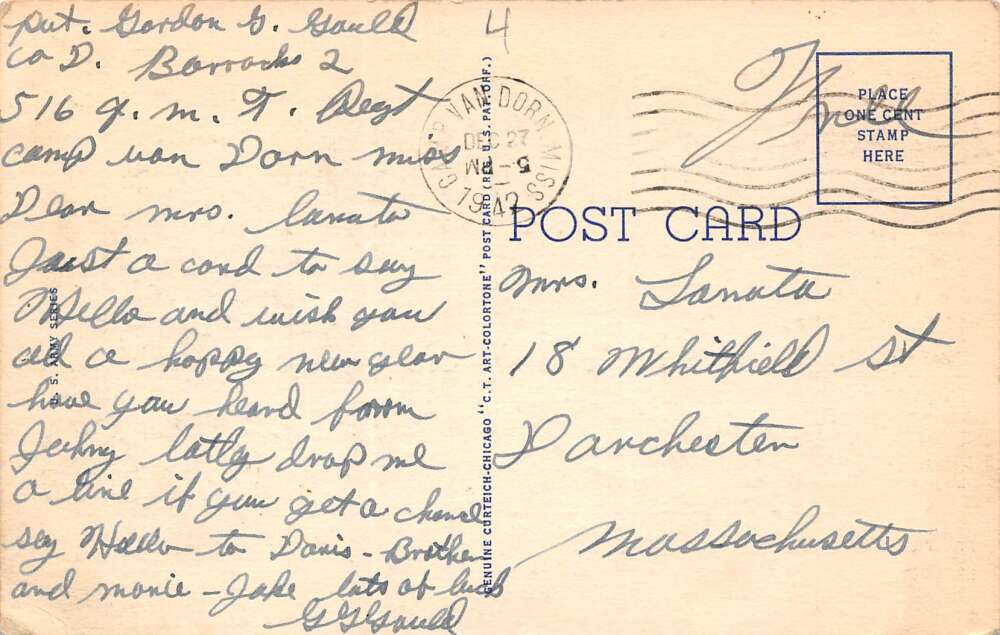 Pvt. Gordon G. Gauld
Co D. Barracks 2
516 q. m. T. Regt
camp van Dorn miss
Dear mrs. Lanata
Just a card to say
Hello and wish you
all a happy new year
have you heard form
Johny latly drop me
a line if you get a chance
say Hello to Doris - Brother
and marie - Jake lots of luck
GG Gauld
4
CAMP VAN DORN, MISS
DEC 27
5 - PM
1942
Free
PLACE
ONE CENT
STAMP
HERE
POST CARD
mrs. Lanata
18 Whitfield St
Dorchester
Massachusetts
U. S. ARMY SERIES
GENUINE CURTEICH-CHICAGO "C.T. ART-COLORTONE" POST CARD (REG. U.S. PAT. OFF.)